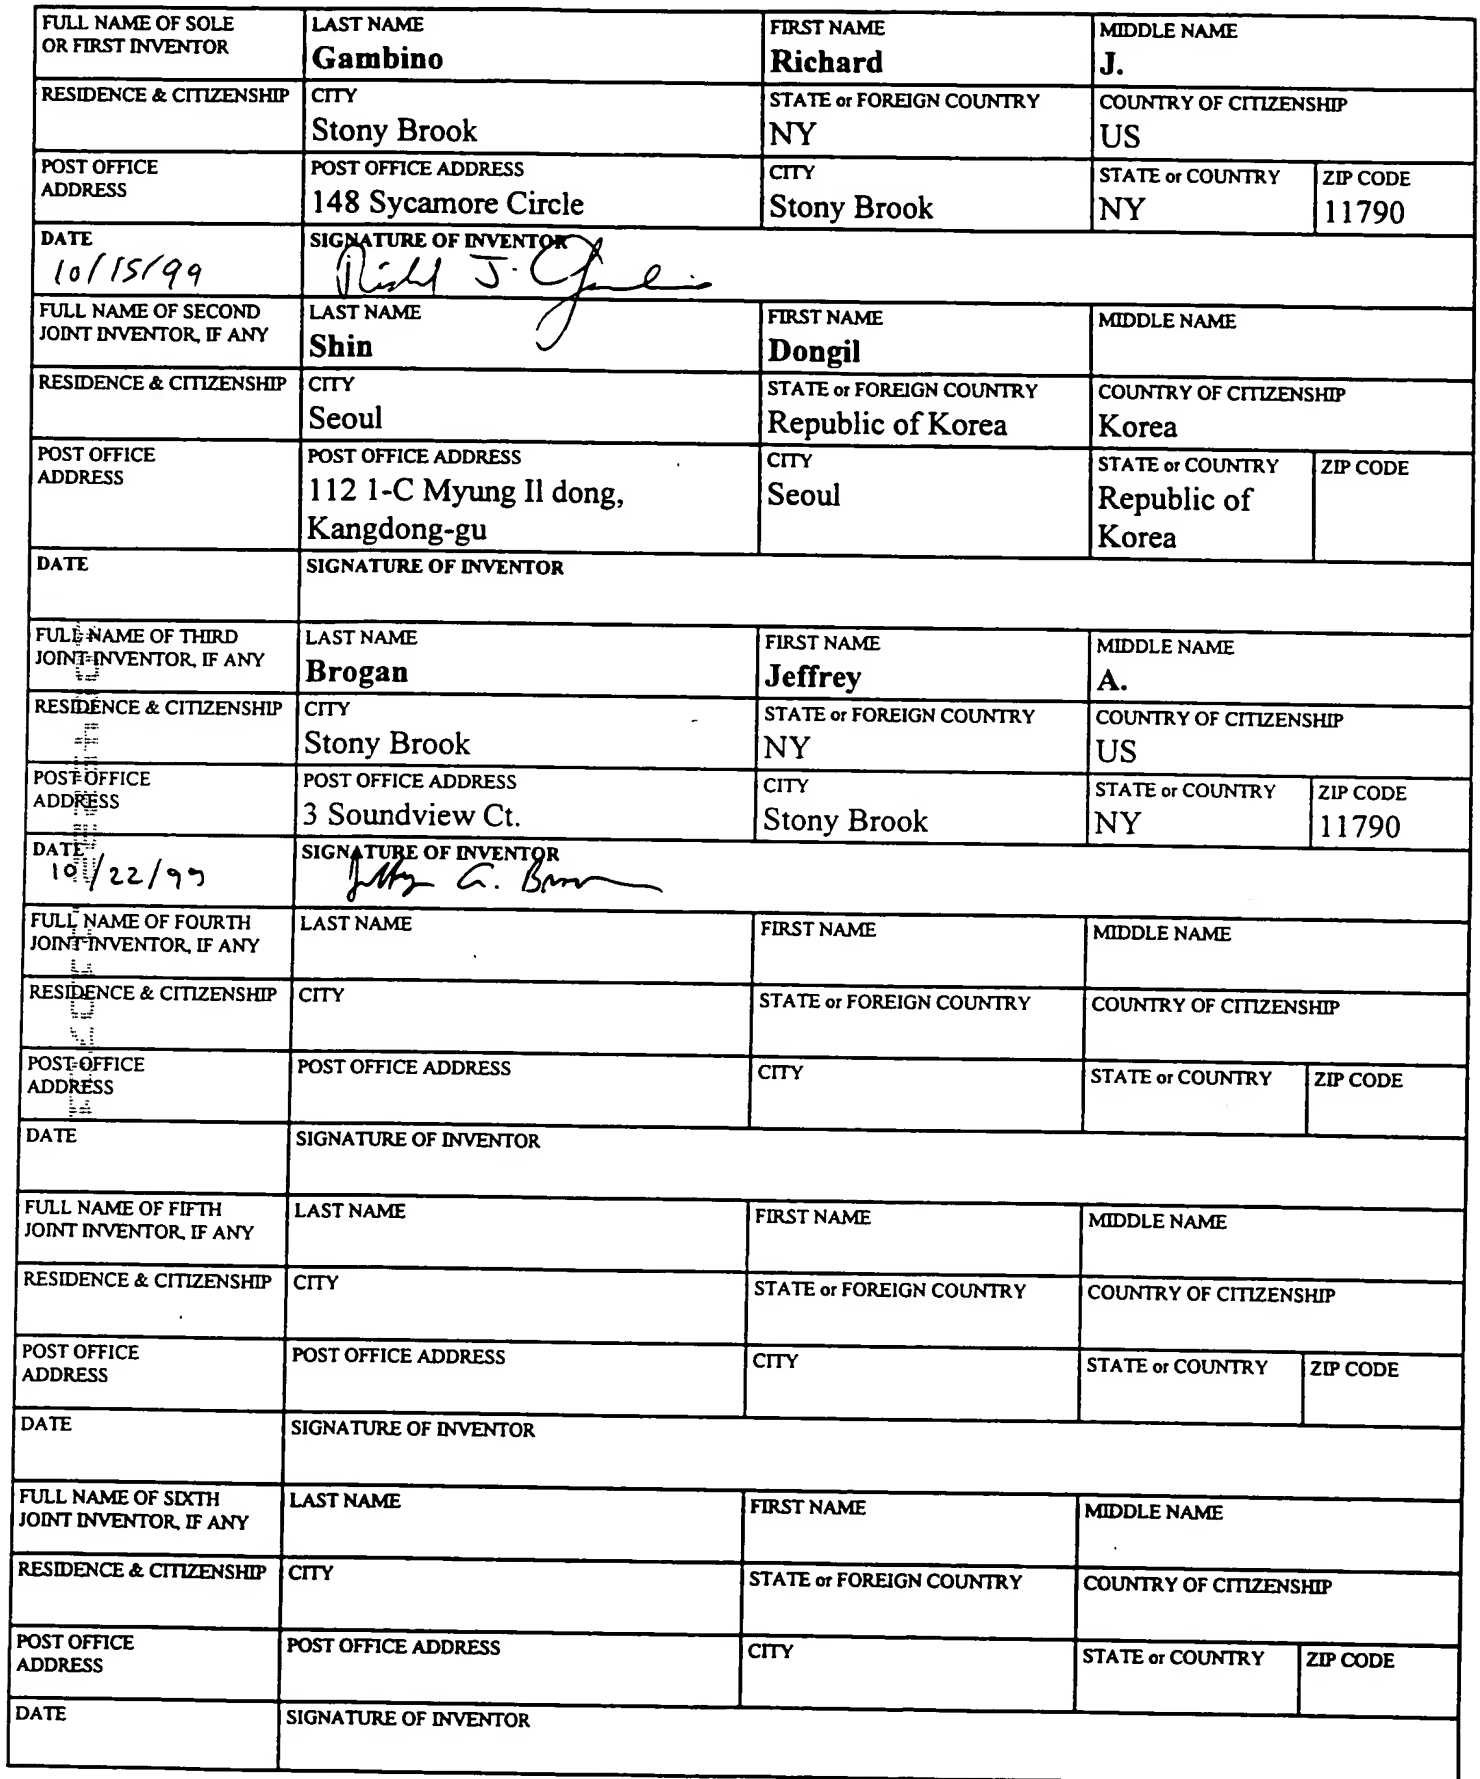 FULL NAME OF SOLE
OR FIRST INVENTOR
LAST NAME
Gambino
FIRST NAME
Richard
MIDDLE NAME
J.
RESIDENCE & CITIZENSHIP
CITY
Stony Brook
STATE or FOREIGN COUNTRY
NY
COUNTRY OF CITIZENSHIP
US
POST OFFICE
ADDRESS
POST OFFICE ADDRESS
148 Sycamore Circle
CITY
Stony Brook
STATE or COUNTRY
NY
ZIP CODE
11790
DATE
10/15/99
SIGNATURE OF INVENTOR
FULL NAME OF SECOND
JOINT INVENTOR, IF ANY
LAST NAME
Shin
FIRST NAME
Dongil
MIDDLE NAME
RESIDENCE & CITIZENSHIP
CITY
Seoul
STATE or FOREIGN COUNTRY
Republic of Korea
COUNTRY OF CITIZENSHIP
Korea
POST OFFICE
ADDRESS
POST OFFICE ADDRESS
112 1-C Myung Il dong,
Kangdong-gu
CITY
Seoul
STATE or COUNTRY
Republic of
Korea
ZIP CODE
DATE
SIGNATURE OF INVENTOR
FULL NAME OF THIRD
JOINT INVENTOR, IF ANY
LAST NAME
Brogan
FIRST NAME
Jeffrey
MIDDLE NAME
A.
RESIDENCE & CITIZENSHIP
CITY
Stony Brook
STATE or FOREIGN COUNTRY
NY
COUNTRY OF CITIZENSHIP
US
POST OFFICE
ADDRESS
POST OFFICE ADDRESS
3 Soundview Ct.
CITY
Stony Brook
STATE or COUNTRY
NY
ZIP CODE
11790
DATE
10/22/99
SIGNATURE OF INVENTOR
FULL NAME OF FOURTH
JOINT INVENTOR, IF ANY
LAST NAME
FIRST NAME
MIDDLE NAME
RESIDENCE & CITIZENSHIP
CITY
STATE or FOREIGN COUNTRY
COUNTRY OF CITIZENSHIP
POST OFFICE
ADDRESS
POST OFFICE ADDRESS
CITY
STATE or COUNTRY
ZIP CODE
DATE
SIGNATURE OF INVENTOR
FULL NAME OF FIFTH
JOINT INVENTOR, IF ANY
LAST NAME
FIRST NAME
MIDDLE NAME
RESIDENCE & CITIZENSHIP
CITY
STATE or FOREIGN COUNTRY
COUNTRY OF CITIZENSHIP
POST OFFICE
ADDRESS
POST OFFICE ADDRESS
CITY
STATE or COUNTRY
ZIP CODE
DATE
SIGNATURE OF INVENTOR
FULL NAME OF SIXTH
JOINT INVENTOR, IF ANY
LAST NAME
FIRST NAME
MIDDLE NAME
RESIDENCE & CITIZENSHIP
CITY
STATE or FOREIGN COUNTRY
COUNTRY OF CITIZENSHIP
POST OFFICE
ADDRESS
POST OFFICE ADDRESS
CITY
STATE or COUNTRY
ZIP CODE
DATE
SIGNATURE OF INVENTOR